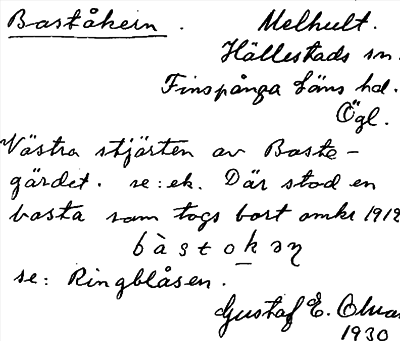 Baståkern. Melhult.
Hällestads sn.
Finspånga läns hd.
Ögl.
Västra stjärten av Baste-
gärdet. se: ek. Där stod en
basta som togs bort omkr 1912
bàstokəɳ
se: Ringblåsen.
Gustaf E.
1930